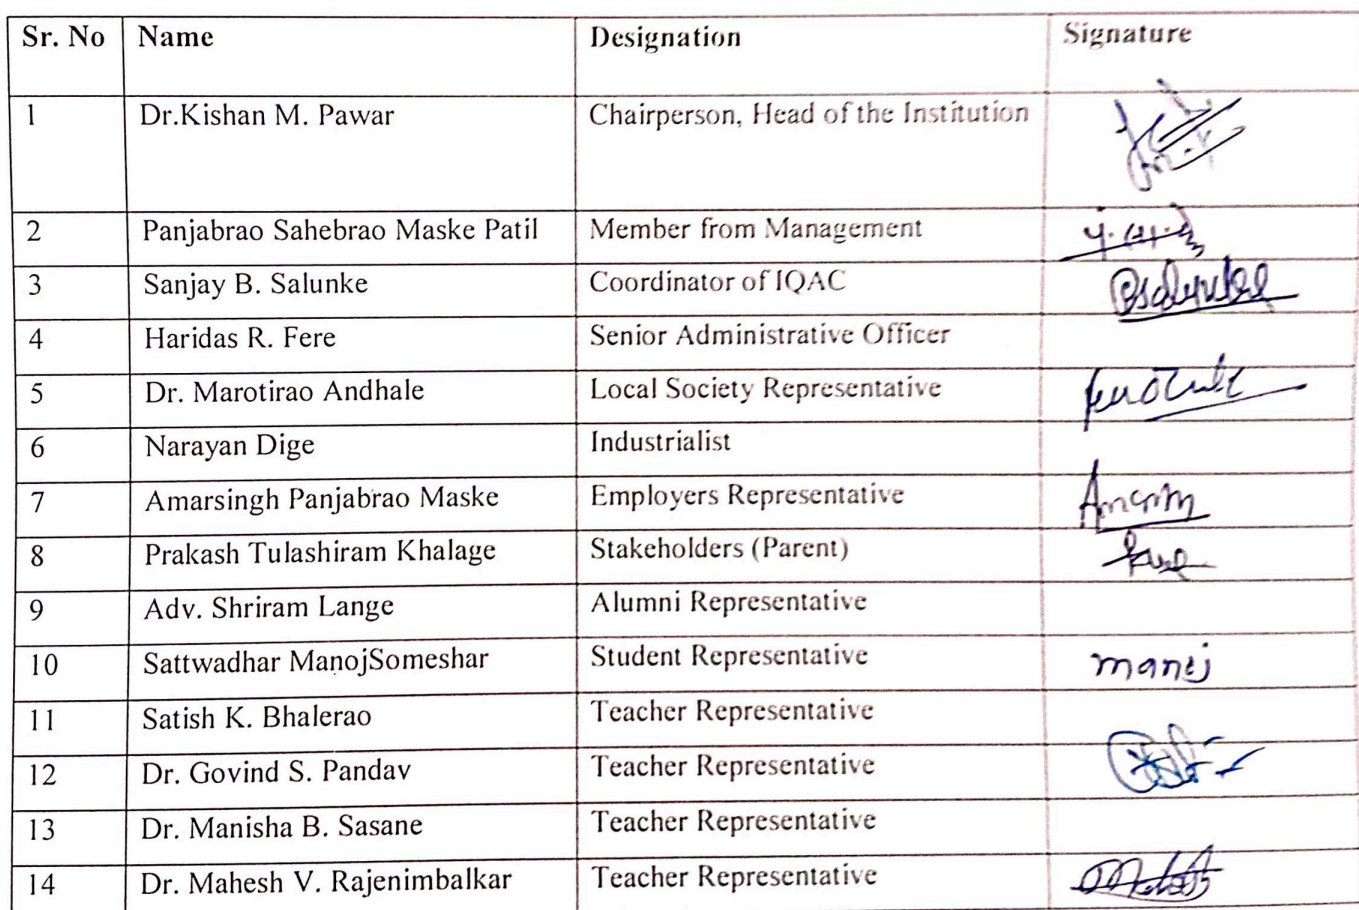 Sr. No Name Designation Signature
1 Dr.Kishan M. Pawar Chairperson, Head of the Institution
2 Panjabrao Sahebrao Maske Patil Member from Management
3 Sanjay B. Salunke Coordinator of IQAC
4 Haridas R. Fere Senior Administrative Officer
5 Dr. Marotirao Andhale Local Society Representative
6 Narayan Dige Industrialist
7 Amarsingh Panjabrao Maske Employers Representative
8 Prakash Tulashiram Khalage Stakeholders (Parent)
9 Adv. Shriram Lange Alumni Representative
10 Sattwadhar ManojSomeshar Student Representative manoj
11 Satish K. Bhalerao Teacher Representative
12 Dr. Govind S. Pandav Teacher Representative
13 Dr. Manisha B. Sasane Teacher Representative
14 Dr. Mahesh V. Rajenimbalkar Teacher Representative